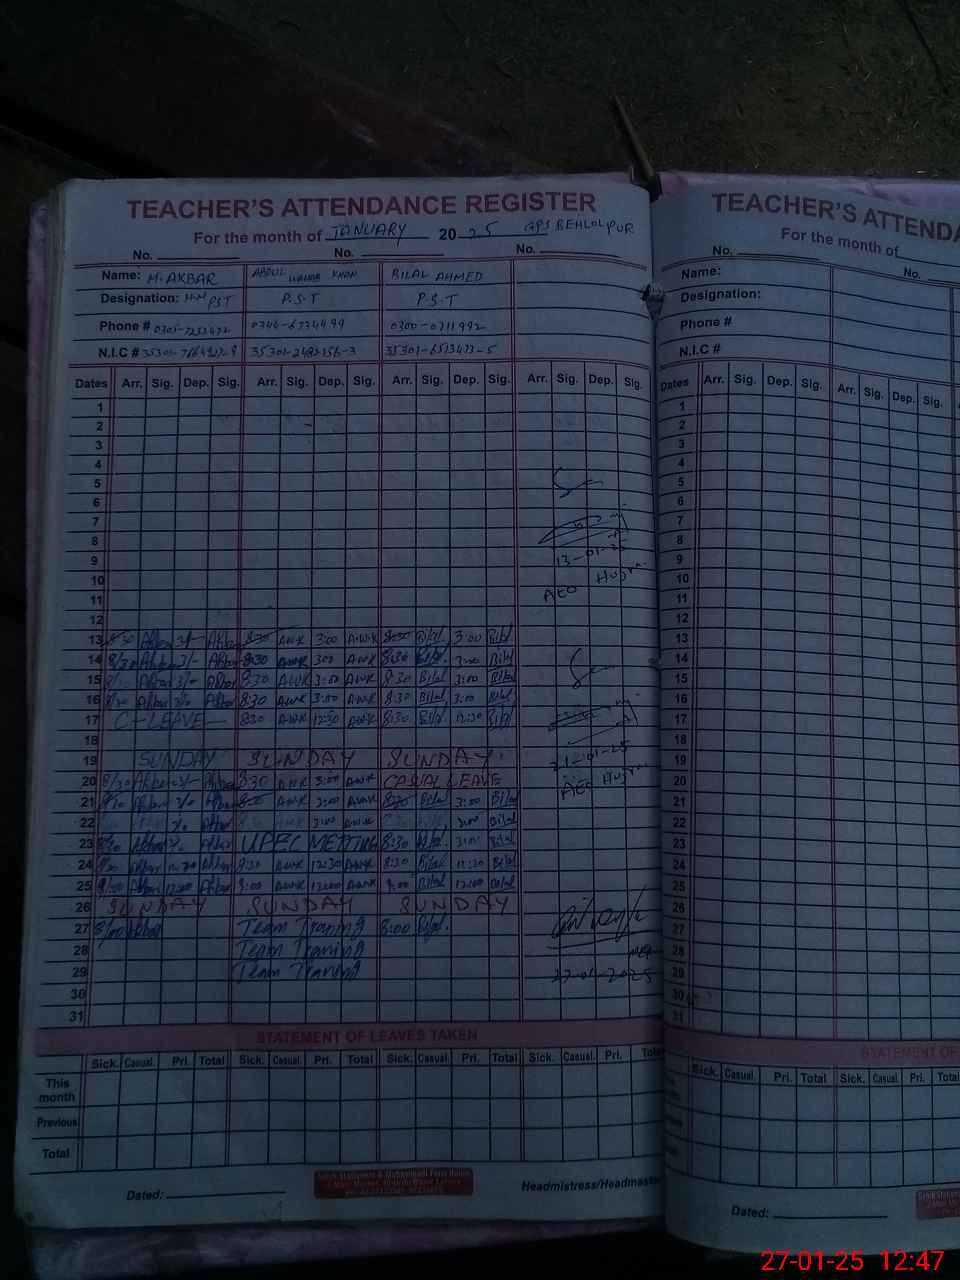 TEACHER'S ATTENDANCE REGISTER
For the month of JANUARY 2025 GPS BEHLOLPUR
No. No. No.
Name: M. AKBAR ABDUL WAHAB KHAN BILAL AHMED
Designation: PST P.S.T P.S.T
Phone # 0300-0711992
N.I.C # 35301-2482156-3 35301-6513473-5
Dates Arr. Sig. Dep. Sig. Arr. Sig. Dep. Sig. Arr. Sig. Dep. Sig. Arr. Sig. Dep. Sig.
1
2
3
4
5
6
7
8
9 13-01-25
10 AEO
11
12
13 8/30 Akbar 3/- Akbar 8:30 AWK 3:00 AWK 8:30 Bilal 3:00 Bilal
14 8/30 Akbar 3/- Akbar 8:30 AWK 3:00 AWK 8:30 Bilal 3:00 Bilal
15 8/30 Akbar 3/- Akbar 8:30 AWK 3:00 AWK 8:30 Bilal 3:00 Bilal
16 8/30 Akbar 3/- Akbar 8:30 AWK 3:00 AWK 8:30 Bilal 3:00 Bilal
17 C-LEAVE 8:30 AWK 12:30 AWK 8:30 Bilal 12:30 Bilal
18
19 SUNDAY SUNDAY SUNDAY 21-01-25
20 8/30 Akbar 3/- Akbar 8:30 AWK 3:00 AWK CASUAL LEAVE AEO
21 8/30 Akbar 3/- Akbar 8:30 AWK 3:00 AWK 8:30 Bilal 3:00 Bilal
22 Akbar AWK 3:00 AWK 3:00 Bilal
23 8/30 Akbar Akbar UPEC MEETING 8:30 Bilal 3:00 Bilal
24 8/30 Akbar 12:30 Akbar 8:30 AWK 12:30 AWK 8:30 Bilal 12:30 Bilal
25 Akbar 12:00 Akbar 9:00 AWK 12:00 AWK 9:00 Bilal 12:00 Bilal
26 SUNDAY SUNDAY SUNDAY
27 8/00 Akbar Team Traning 8:00 Bilal
28 Team Traning MEA
29 Team Traning 27-01-2025
30
31
STATEMENT OF LEAVES TAKEN
Sick. Casual. Pri. Total Sick. Casual. Pri. Total Sick. Casual. Pri. Total Sick. Casual. Pri. Total
This month
Previous
Total
Dated: Headmistress/Headmaster
TEACHER'S ATTENDA
For the month of
No. No.
Name:
Designation:
Phone #
N.I.C #
Dates Arr. Sig. Dep. Sig. Arr. Sig. Dep. Sig.
1
2
3
4
5
6
7
8
9
10
11
12
13
14
15
16
17
18
19
20
21
22
23
24
25
26
27
28
29
30
31
STATEMENT OF
Sick. Casual. Pri. Total Sick. Casual. Pri. Total
Dated:
27-01-25 12:47